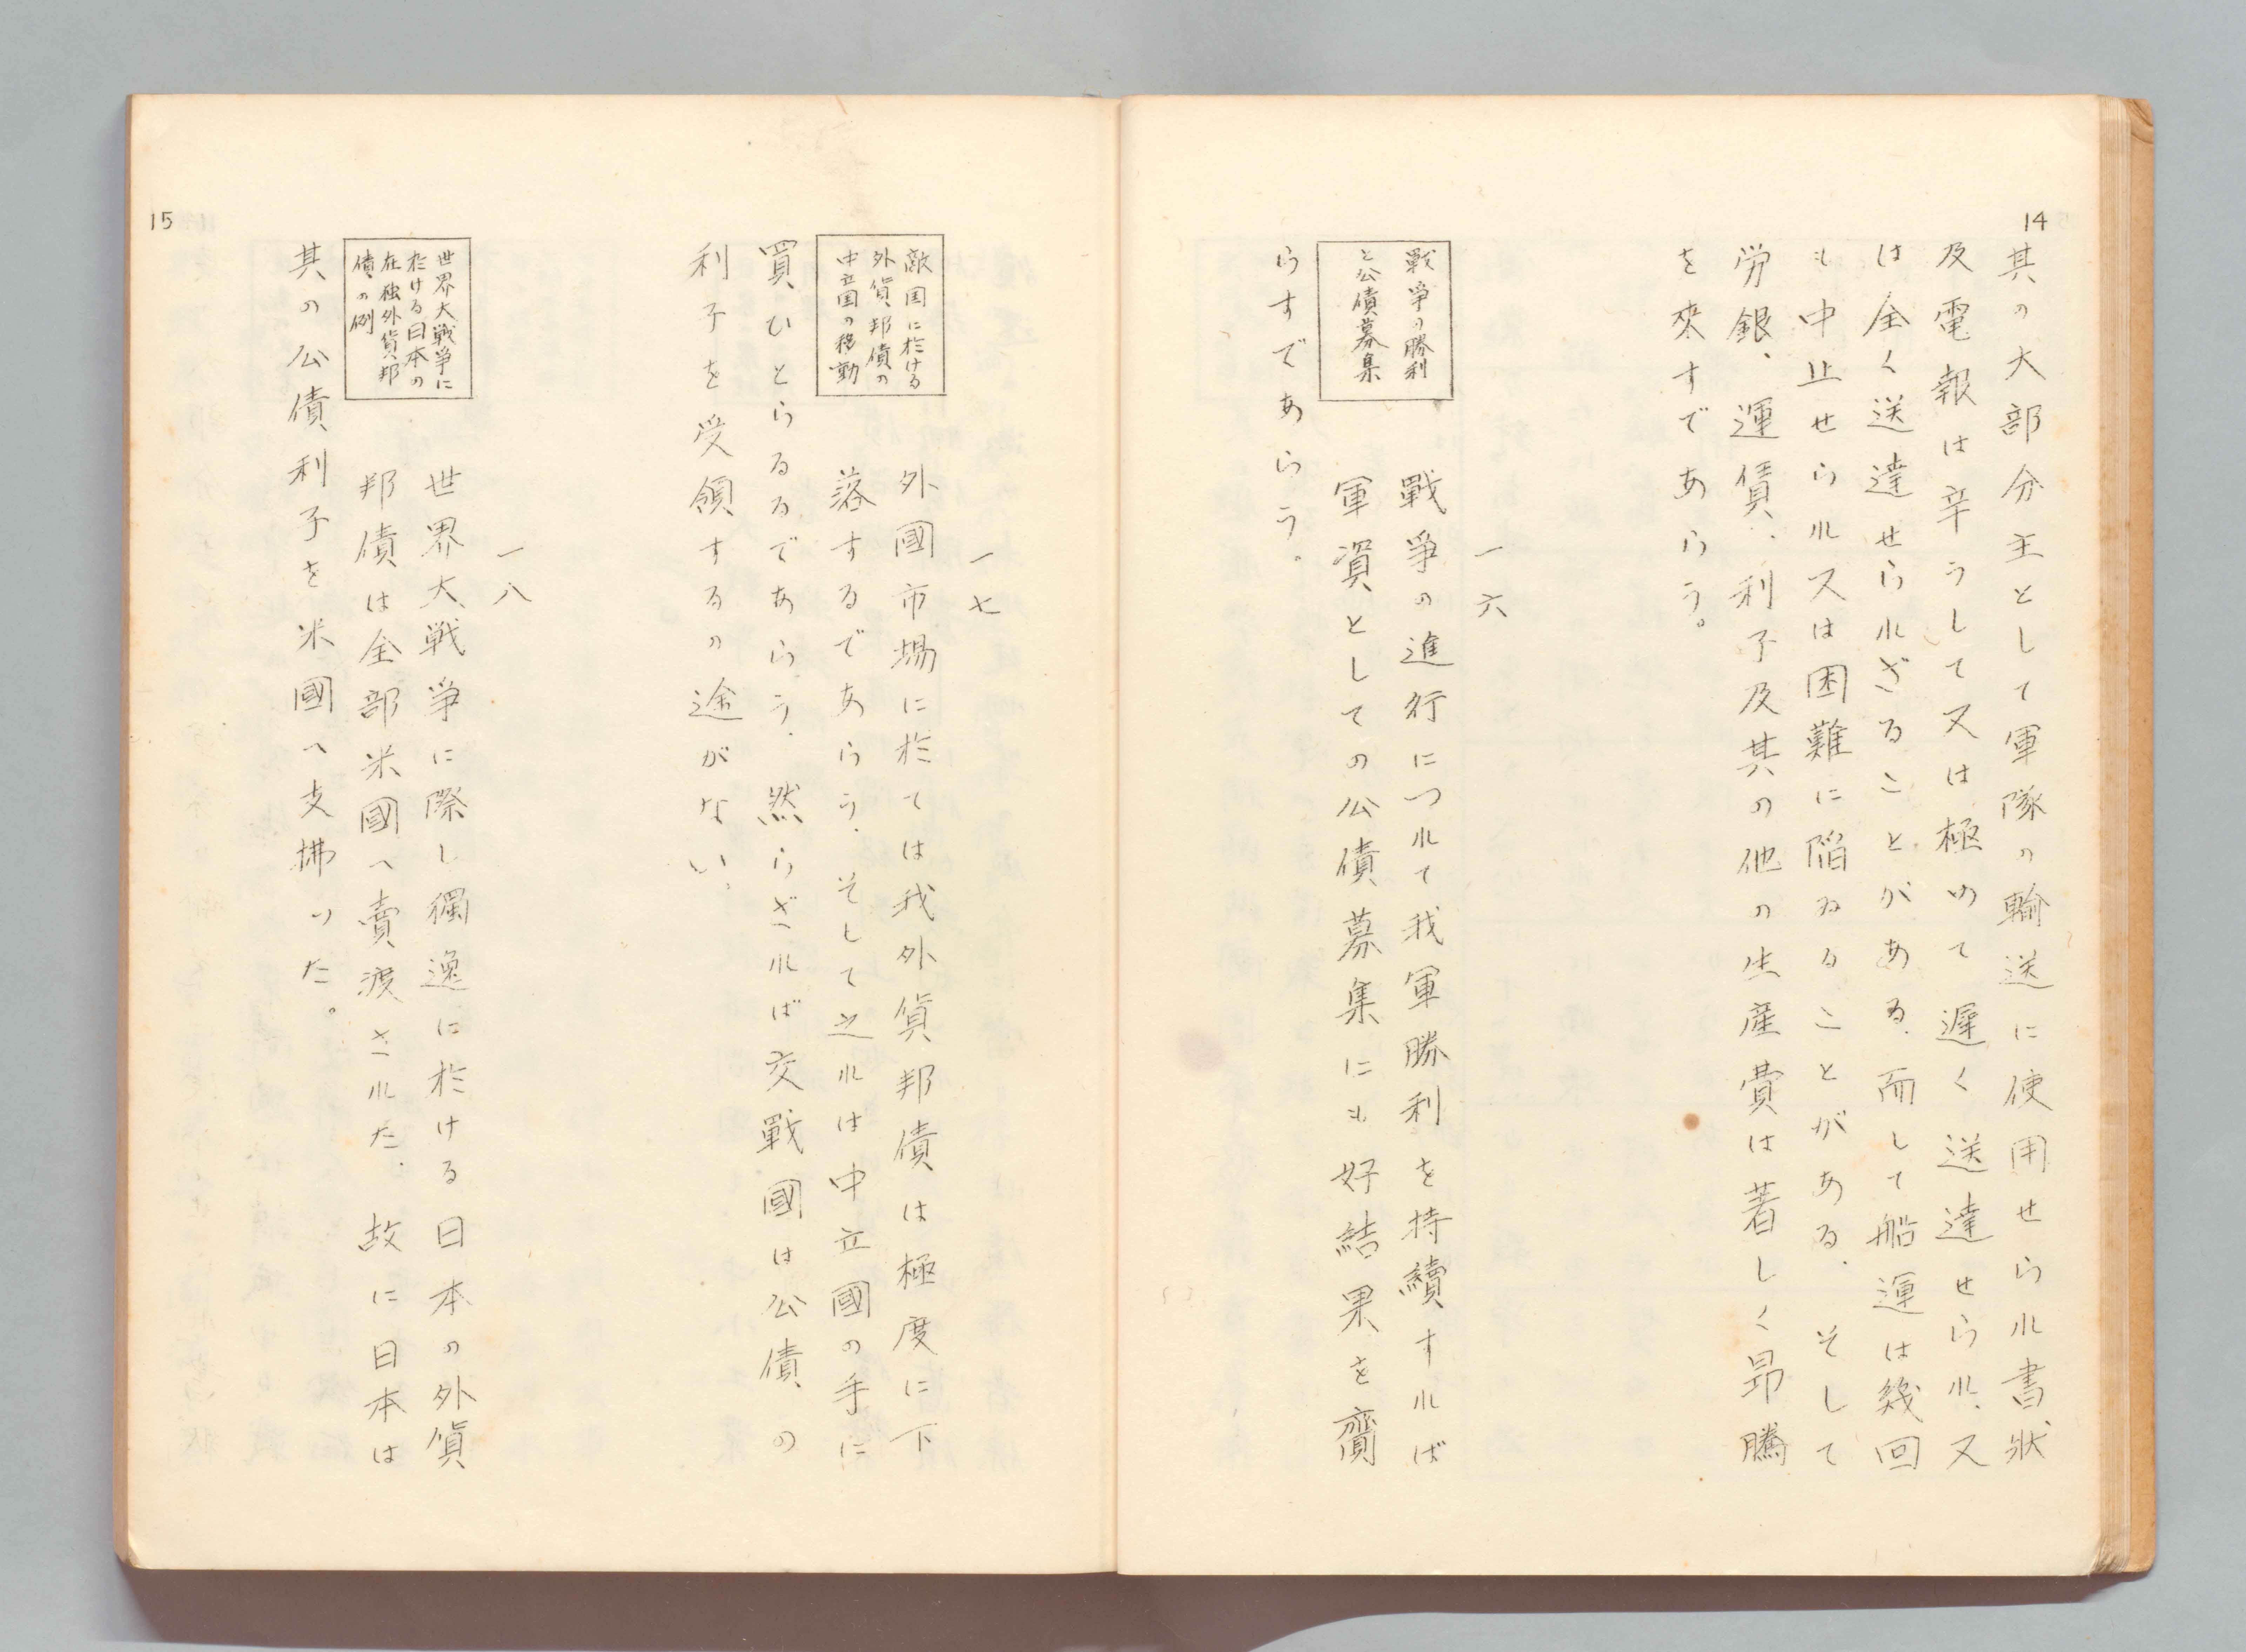 14
其の大部分主として軍隊の輸送に使用せられ書状、
及電報は辛うして又は極めて遅く送達せられ、又
は全く送達せられざることがある、而して船運は幾回
も中止せられ又は困難に陥ゐることがある、そして
労銀、運賃、利子及其の他の生産費は著しく昻騰
を來すであらう。
一六
戰爭の勝利
と公債募集
戰爭の進行につれて我軍勝利を持續すれば
軍資としての公債募集にも好結果を齎
らすであらう。
一七
敵国に於ける
外貨邦債の
中立国の移動
外國市場に於ては我外貨邦債は極度に下
落するであらう、そして之れは中立國の手に
買ひとらるるであらう、然らざれば交戰國は公債の
利子を受領するの途がない。
一八
世界大戦爭に
於ける日本の
在独外貨邦
債の例
世界大戦爭に際し獨逸に於ける日本の外貨
邦債は全部米國へ賣渡された、故に日本は
其の公債利子を米國へ支拂つた。
15